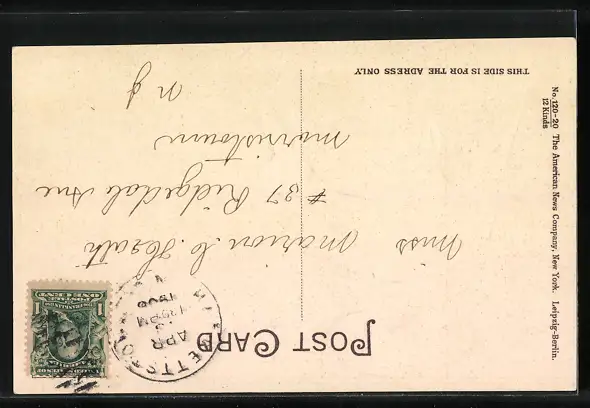 POST CARD
THIS SIDE IS FOR THE ADRESS ONLY
No. 120-20 The American News Company, New York. Leipzig-Berlin.
12 Kinds
APR
1PM
POSTAGE
ONE CENT
1 1
Miss Marion C. Heath
# 37 Ridgedale Ave
Morristown
N J